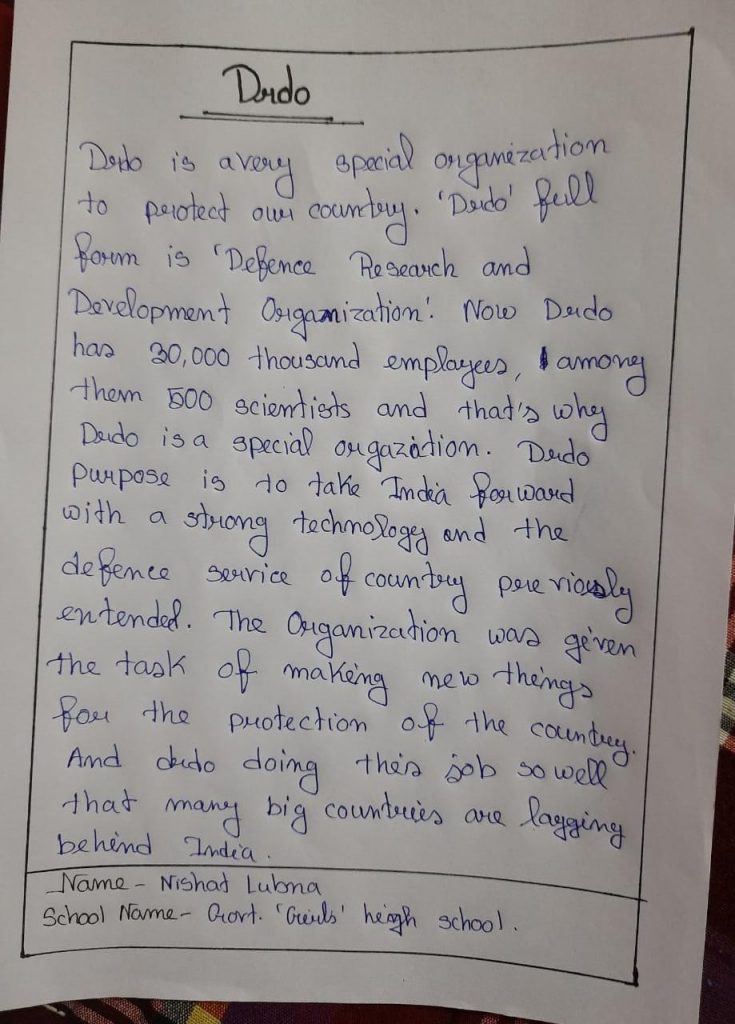 Drdo
Drdo is a very special organization
to protect our country. 'Drdo' full
form is 'Defence Research and
Development Organization'. Now Drdo
has 30,000 thousand employees, among
them 500 scientists and that's why
Drdo is a special orgazation. Drdo
purpose is to take India forward
with a strong technology and the
defence service of country previously
entended. The Organization was given
the task of making new things
for the protection of the country.
And drdo doing this job so well
that many big countries are lagging
behind India.
Name - Nishat Lubna
School Name - Govt. 'Girls' heigh school.